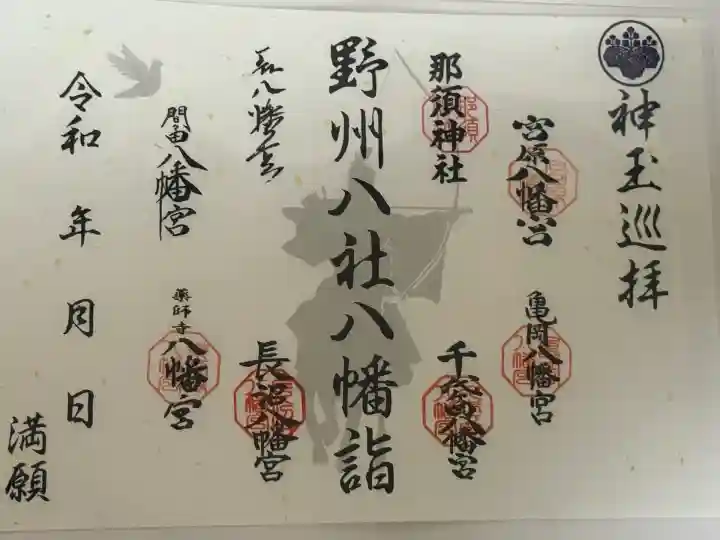 神玉巡拝
宮原八幡宮
亀岡八幡宮
那須神社
那須
千代ヶ岡八幡宮
野州八社八幡詣
長沼八幡宮
間々田八幡宮
薬師寺
八幡宮
令和 年 月 日
満願